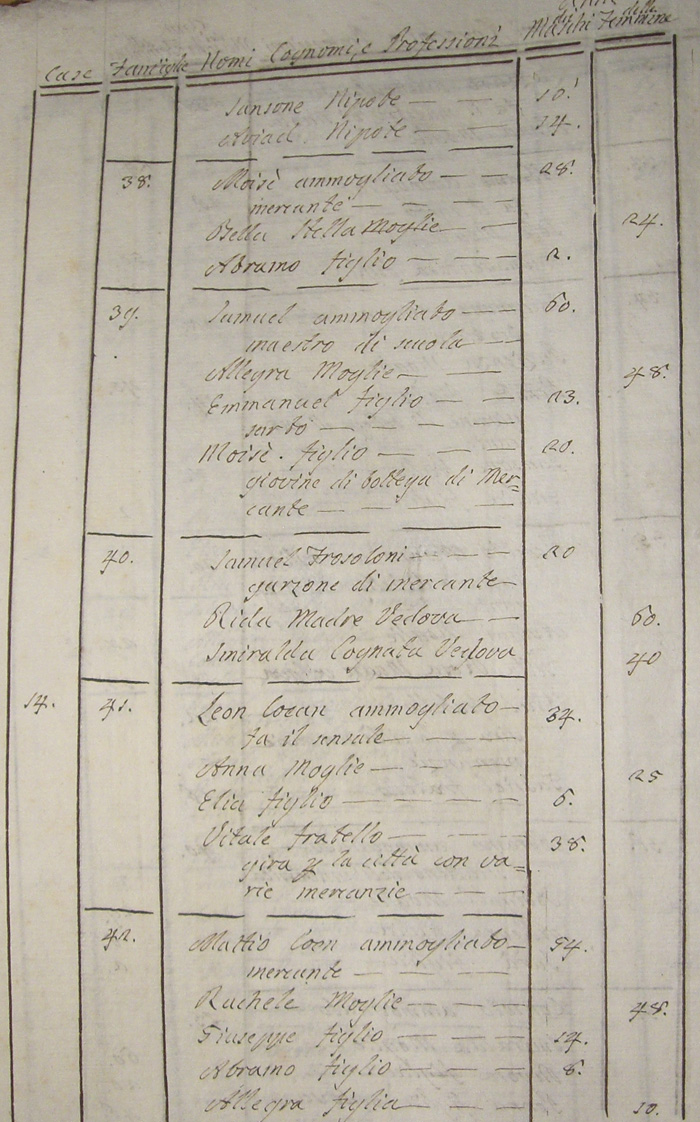 Anni
de Maschi delle Femmine
Case Famiglie Nomi Cognomi, e Professioni
Sansone Nipote — — 10.
Abiad. Nipote — — 14.
38. Moisè ammogliato — — 28.
mercante — — —
Bella Stella Moglie — — 24.
Abramo figlio — — — 2.
39. Samuel ammogliato — — 60.
maestro di scuola —
Allegra Moglie — — — 48.
Emmanuel figlio — — 23.
sarto — — — —
Moisè. figlio — — — 20.
giovine di bottega di Mer=
cante — — — —
40. Samuel Frosoloni — — — 20
garzone di mercante
Rida Madre Vedova — 60.
Smiralda Cognata Vedova 40
14. 41. Leon Coean ammogliato — 34.
fa il sensale — — —
Anna Moglie — — — — 25
Elia figlio — — — — 6.
Vitale fratello — — — 38.
gira p la città con va=
rie mercanzie — — —
42. Mattio Coen ammogliato — 54.
mercante — — — —
Rachele Moglie — — — 48.
Giuseppe figlio — — — 14.
Abramo figlio — — — 8.
Allegra figlia — — — 10.